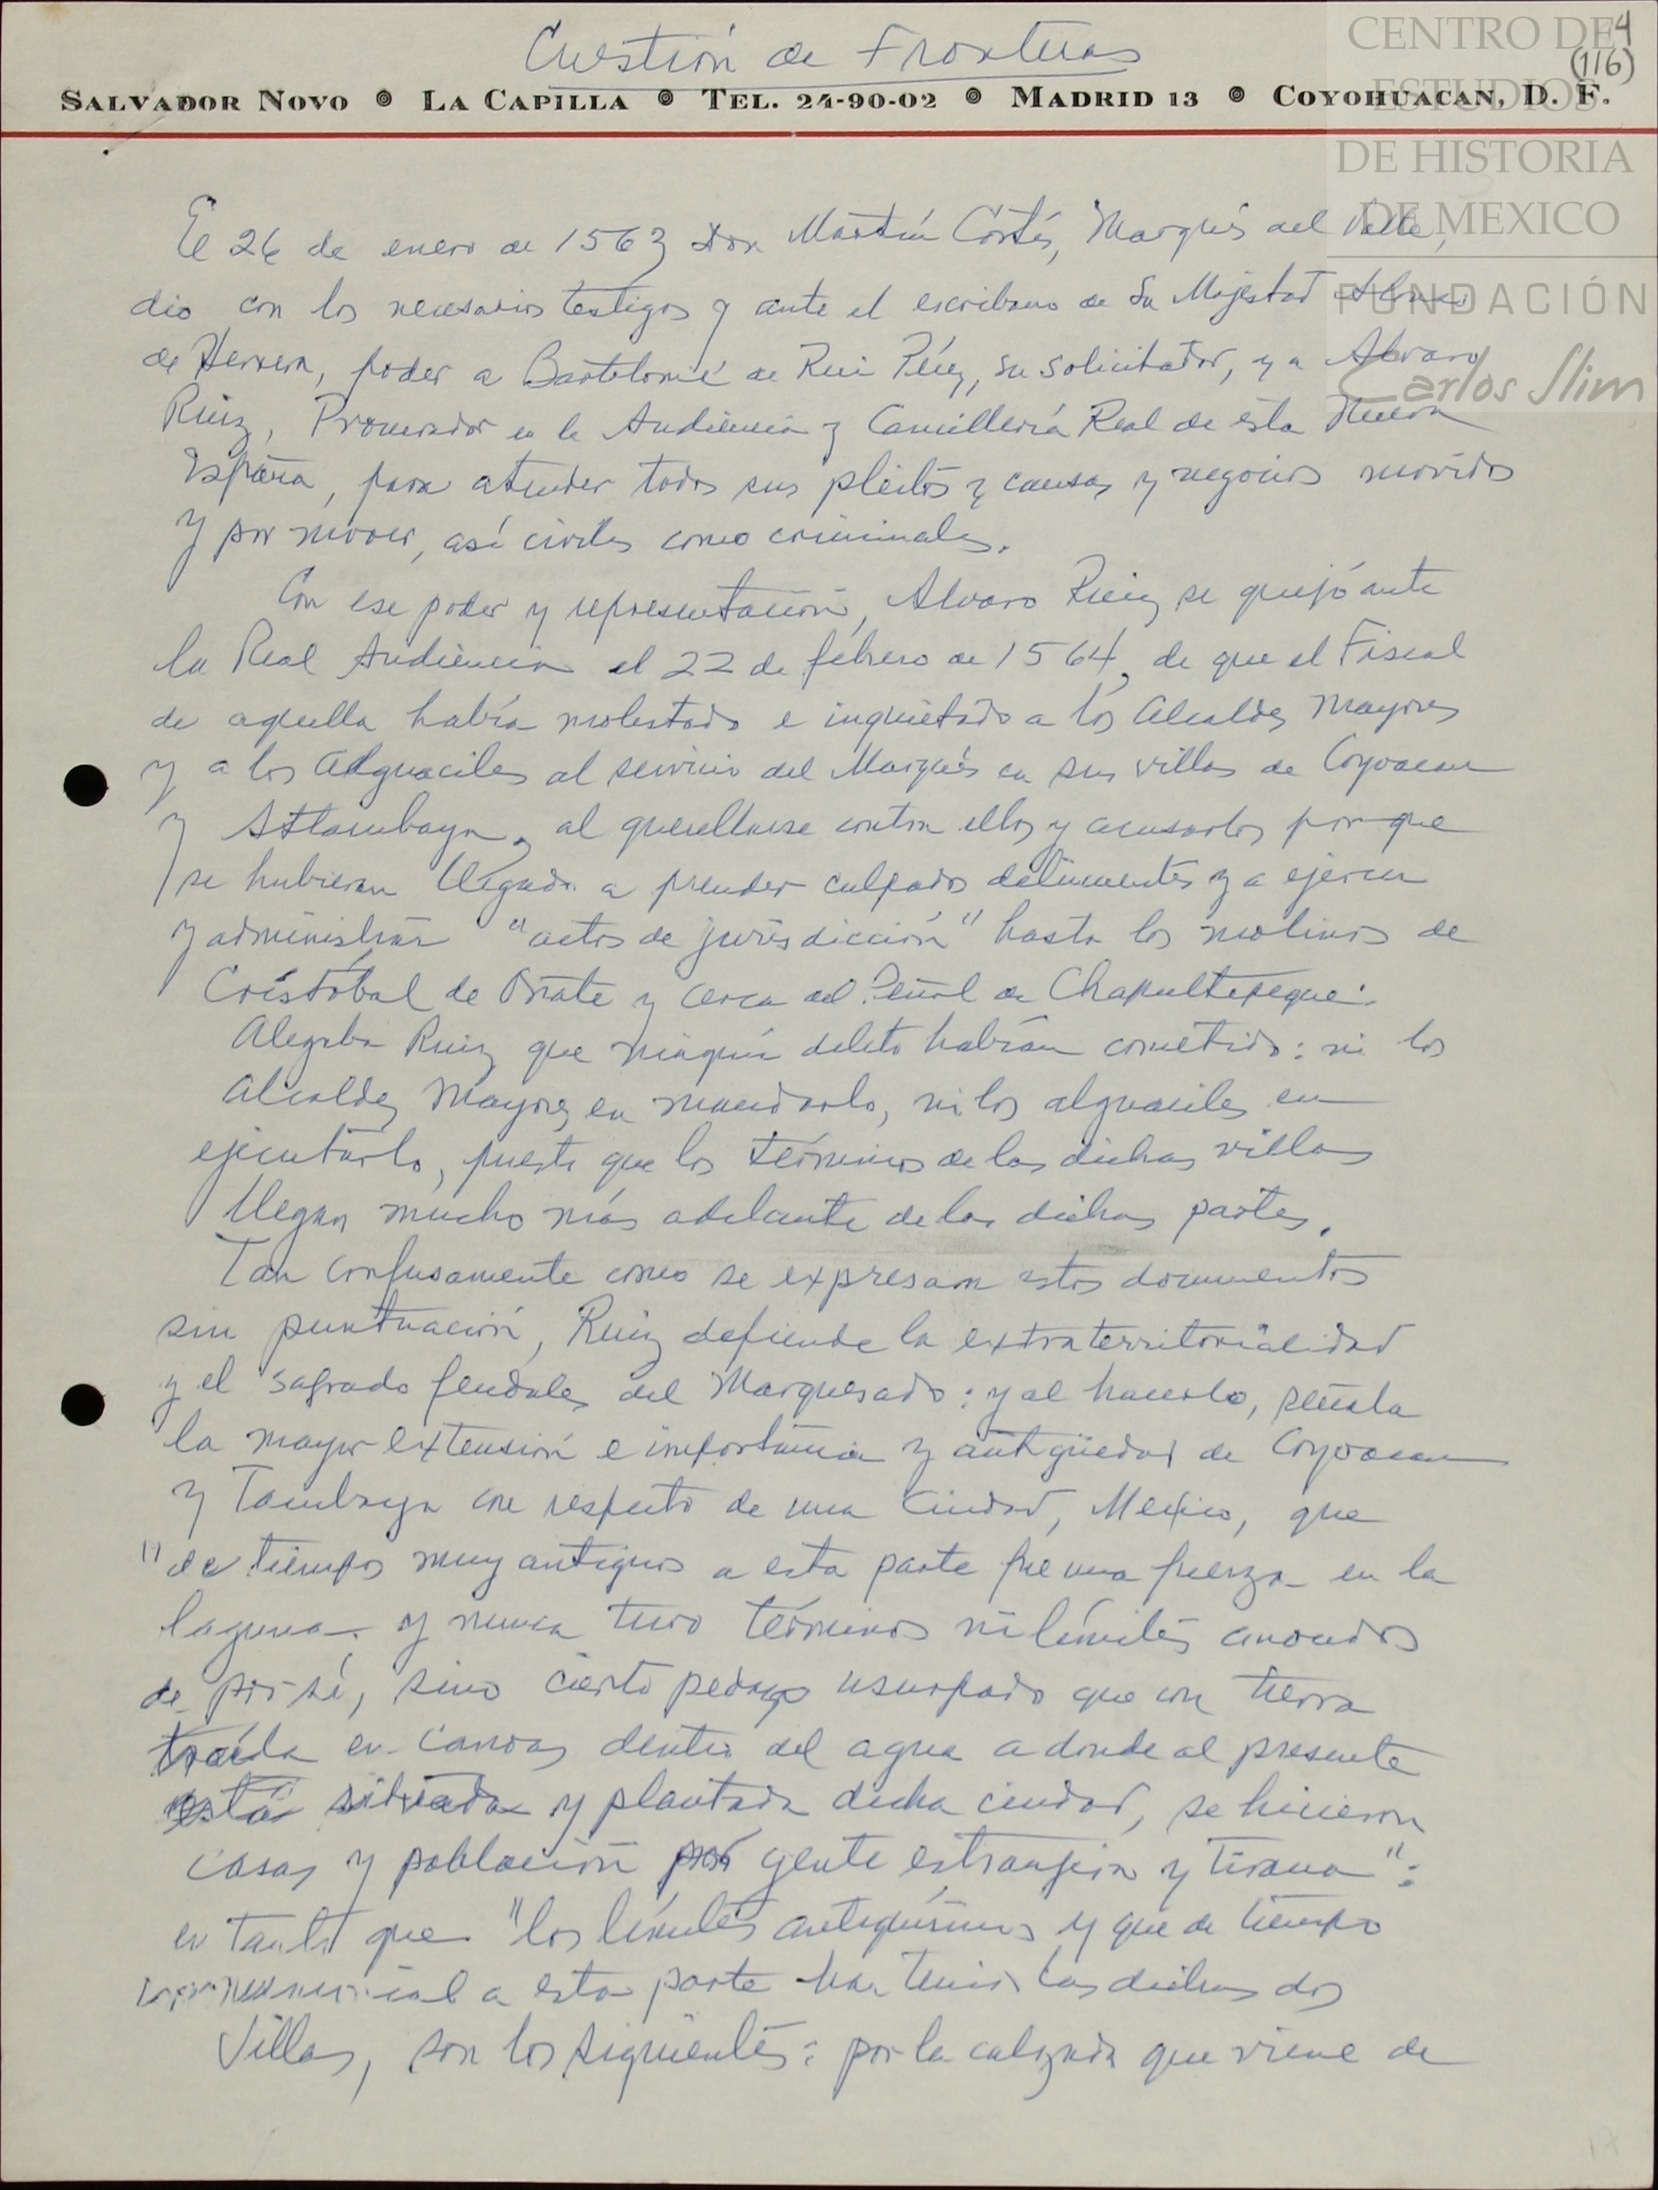 Cuestión de Fronteras
4
(1/6)
SALVADOR NOVO ◉ LA CAPILLA ◉ TEL. 24-90-02 ◉ MADRID 13 ◉ COYOHUACAN, D. F.
CENTRO DE
ESTUDIOS
DE HISTORIA
DE MEXICO
FUNDACIÓN
Carlos Slim
El 26 de enero de 1563 Don Martín Cortés, Marqués del Valle,
dio con los necesarios testigos y ante el escribano de Su Majestad Alonso
de Herrera, poder a Bartolomé de Rui Pérez, su solicitador, y a Alvaro
Ruiz, Procurador en la Audiencia y Cancillería Real de esta Nueva
España, para atender todos sus pleitos y causas y negocios movidos
y por mover, así civiles como criminales.
Con ese poder y representación, Alvaro Ruiz se quejó ante
la Real Audiencia el 22 de febrero de 1564, de que el Fiscal
de aquella había molestado e inquietado a los Alcaldes Mayores
y a los Alguaciles al servicio del Marqués en sus villas de Coyoacan
y Atlacubaya, al querellarse contra ellos y acusarlos porque
se hubieran llegado a prender culpados delincuentes y a ejercer
y administrar "actos de jurisdicción" hasta los molinos de
Cristóbal de Oñate y cerca del Peñol de Chapultepeque.
Alegaba Ruiz que ningún delito habían cometido: ni los
Alcaldes Mayores en mandarlo, ni los alguaciles en
ejecutarlo, puesto que los términos de las dichas villas
llegan mucho más adelante de las dichas partes.
Tan confusamente como se expresan estos documentos
sin puntuación, Ruiz defiende la extraterritorialidad
y el sagrado feudales del Marquesado: y al hacerlo, señala
la mayor extensión e importancia y antigüedad de Coyoacan
y Tacubaya con respecto de una Ciudad, Mexico, que
"de tiempos muy antiguos a esta parte fue una fuerza en la
laguna y nunca tuvo términos ni límites conocidos
de por sí, sino cierto pedazo usurpado que con tierra
traída en canoas dentro del agua a donde al presente
está situada y plantada dicha ciudad, se hicieron
casas y población por gente extranjera y tirana":
en tanto que "los límites antiquísimos y que de tiempo
inmemorial a esta parte han tenido las dichas dos
Villas, son los siguientes: por la calzada que viene de